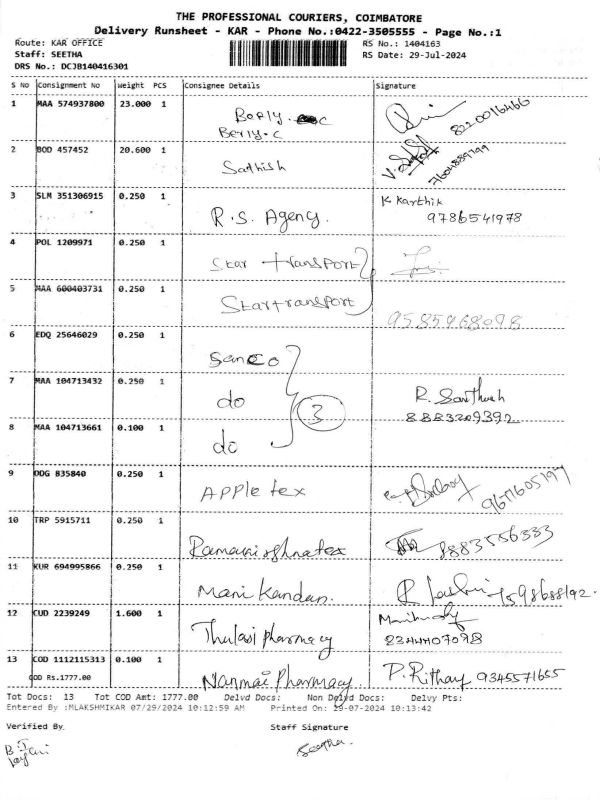 THE PROFESSIONAL COURIERS, COIMBATORE
Delivery Runsheet - KAR - Phone No.:0422-3505555 - Page No.:1
Route: KAR OFFICE RS No.: 1404163
Staff: SEETHA RS Date: 29-Jul-2024
DRS No.: DCJB140416301
S No Consignment No Weight PCS Consignee Details Signature
1 MAA 574937800 23.000 1 Berly. C
Berly.C 8220016466
2 BOD 457452 20.600 1 Sathish 7604889799
3 SLM 351306915 0.250 1 R.S. Agency. K Karthik
9786541978
4 POL 1209971 0.250 1 Star transport
5 MAA 600403731 0.250 1 Star transport
9585968098
6 EDQ 25646029 0.250 1 Sanco
7 MAA 104713432 0.250 1 do 3 R. Santhosh
8883209392
8 MAA 104713661 0.100 1 do
9 DDG 835840 0.250 1 APPle tex 9677605197
10 TRP 5915711 0.250 1 8883556333
11 KUR 694995866 0.250 1 Mani Kandan.
12 CUD 2239249 1.600 1 Thulasi pharmacy
2344407098
13 COD 1112115313 0.100 1 Nanmai Pharmacy P. Rithay 9345571655
COD Rs.1777.00
Tot Docs: 13 Tot COD Amt: 1777.00 Delvd Docs: Non Delvd Docs: Delvy Pts:
Entered By :MLAKSHMIKAR 07/29/2024 10:12:59 AM Printed On: 29-07-2024 10:13:42
Verified By. Staff Signature
Seetha.